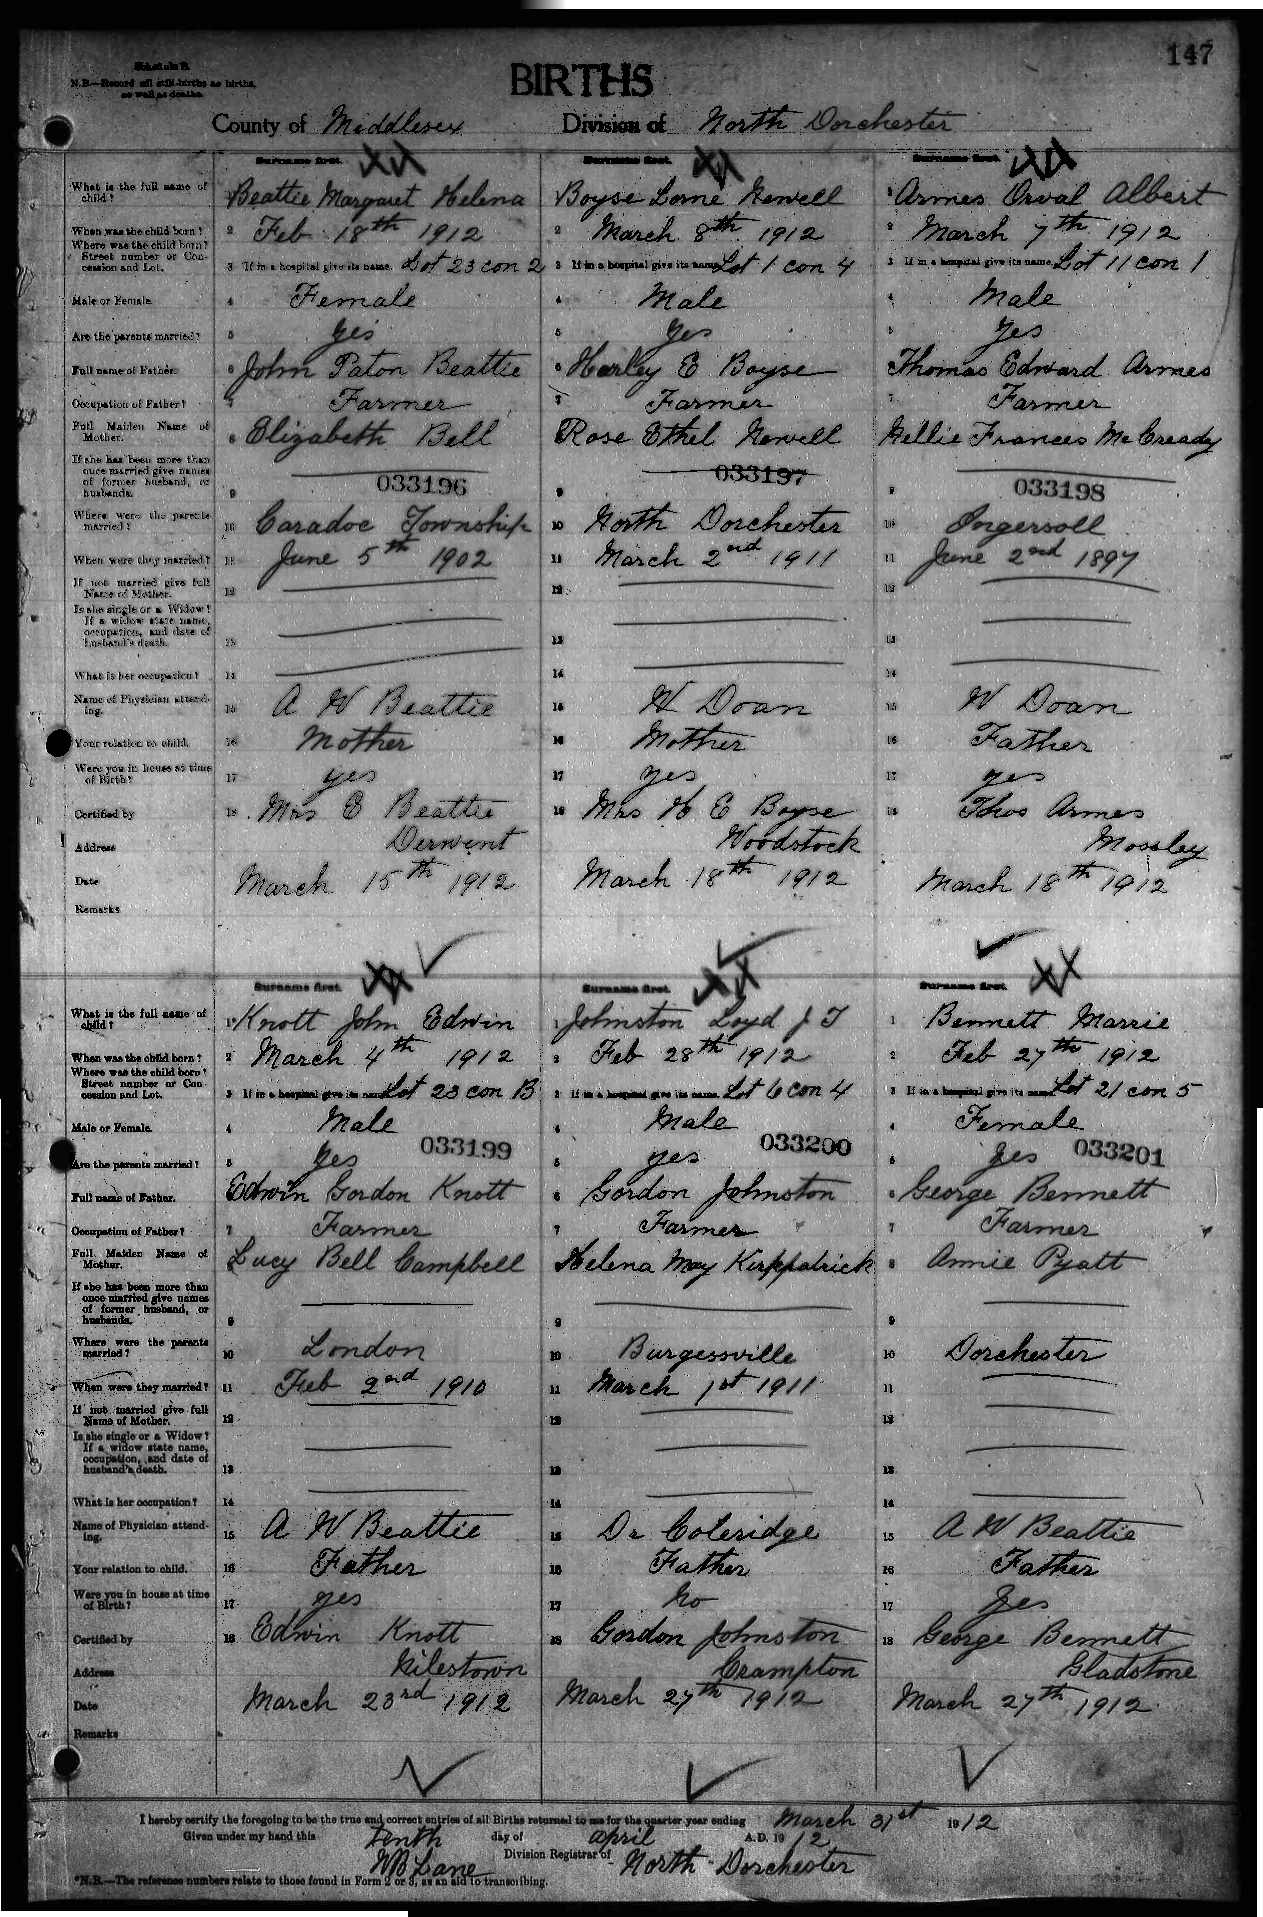 147
Schedule B.
N.B.—Record all still-births as births,
as well as deaths.
BIRTHS
County of Middlesex Division of North Dorchester
Surname first. Surname first. Surname first.
What is the full name of child? 1 Beattie Margaret Helena Boyse Lorne Newell 1 Armes Orval Albert
When was the child born? 2 Feb 18th 1912 2 March 8th 1912 2 March 7th 1912
Where was the child born? Street number or Concession and Lot. 3 If in a hospital give its name. Lot 23 con 2 3 If in a hospital give its name. Lot 1 con 4 3 If in a hospital give its name. Lot 11 con 1
Male or Female. 4 Female 4 Male 4 Male
Are the parents married? 5 yes 5 Yes 5 Yes
Full name of Father. 6 John Paton Beattie 6 Harley E Boyse Thomas Edward Armes
Occupation of Father? 7 Farmer 7 Farmer 7 Farmer
Full Maiden Name of Mother. 8 Elizabeth Bell Rose Ethel Newell Nellie Frances McCready
If she has been more than once married give names of former husband, or husbands. 9 033196 9 033197 9 033198
Where were the parents married? 10 Caradoc Township 10 North Dorchester 10 Ingersoll
When were they married? 11 June 5th 1902 11 March 2nd 1911 11 June 2nd 1897
If not married give full Name of Mother. 12 12 12
Is she single or a Widow? If a widow state name, occupation, and date of husband's death. 13 13 13
What is her occupation? 14 14 14
Name of Physician attending. 15 A W Beattie 15 W Doan 15 W Doan
Your relation to child. 16 Mother 16 Mother 16 Father
Were you in house at time of Birth? 17 yes 17 yes 17 yes
Certified by 18 Mrs E Beattie 18 Mrs H E Boyse 18 Thos Armes
Address Derwent Woodstock Mossley
Date March 15th 1912 March 18th 1912 March 18th 1912
Remarks
Surname first. Surname first. Surname first.
What is the full name of child? 1 Knott John Edwin 1 Johnston Loyd J T 1 Bennett Marrie
When was the child born? 2 March 4th 1912 2 Feb 28th 1912 2 Feb 27th 1912
Where was the child born? Street number or Concession and Lot. 3 If in a hospital give its name. Lot 23 con B 3 If in a hospital give its name. Lot 6 con 4 3 If in a hospital give its name. Lot 21 con 5
Male or Female. 4 Male 4 Male 4 Female
Are the parents married? 5 Yes 033199 5 yes 033200 5 Yes 033201
Full name of Father. Edwin Gordon Knott 6 Gordon Johnston 6 George Bennett
Occupation of Father? 7 Farmer 7 Farmer 7 Farmer
Full Maiden Name of Mother. Lucy Bell Campbell Helena May Kirkpatrick 8 Annie Pyatt
If she has been more than once married give names of former husband, or husbands. 9 9 9
Where were the parents married? 10 London 10 Burgessville 10 Dorchester
When were they married? 11 Feb 2nd 1910 11 March 1st 1911 11
If not married give full Name of Mother. 12 12 12
Is she single or a Widow? If a widow state name, occupation, and date of husband's death. 13 13 13
What is her occupation? 14 14 14
Name of Physician attending. 15 A W Beattie 15 Dr Coleridge 15 A W Beattie
Your relation to child. 16 Father 16 Father 16 Father
Were you in house at time of Birth? 17 yes 17 No 17 Yes
Certified by 18 Edwin Knott 18 Gordon Johnston 18 George Bennett
Address Nilestown Crampton Gladstone
Date March 23rd 1912 March 27th 1912 March 27th 1912
Remarks
I hereby certify the foregoing to be the true and correct entries of all Births returned to me for the quarter year ending March 31st 1912
Given under my hand this tenth day of April A.D. 1912
W B Lane Division Registrar of North Dorchester
*N.B.—The reference numbers relate to those found in Form 2 or 3, as an aid to transcribing.